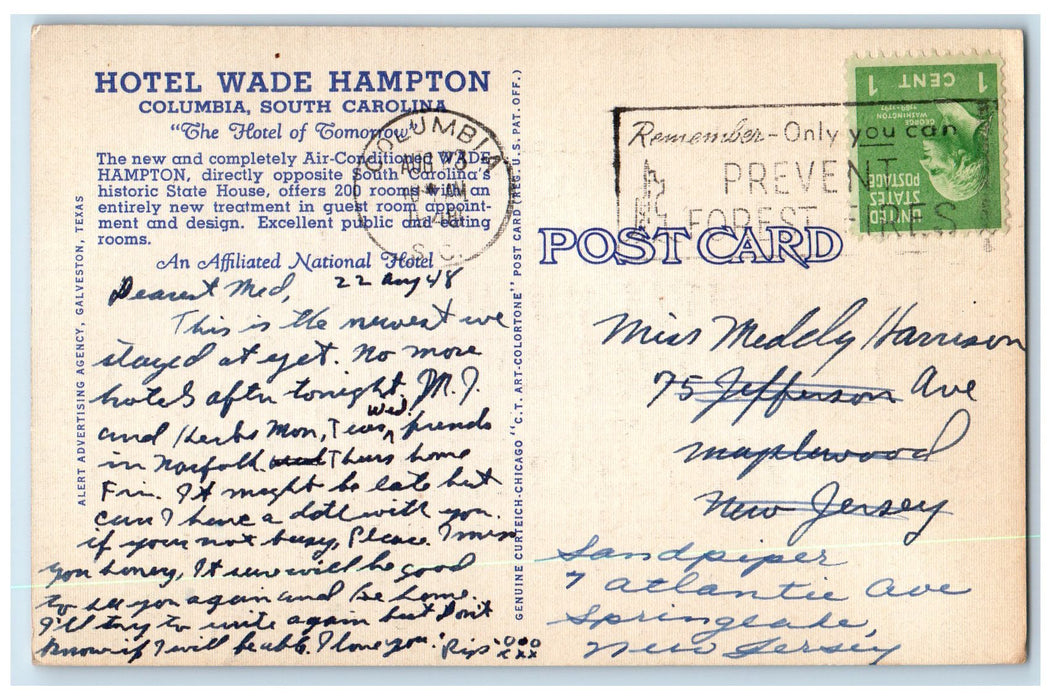 HOTEL WADE HAMPTON
COLUMBIA, SOUTH CAROLINA
"The Hotel of Tomorrow"
The new and completely Air-Conditioned WADE
HAMPTON, directly opposite South Carolina's
historic State House, offers 200 rooms with an
entirely new treatment in guest room appoint-
ment and design. Excellent public and eating
rooms.
An Affiliated National Hotel
Dearest Med, 22 Aug 48
This is the newest we
stayed at yet. No more
hotels after tonight. M.J.
and Herbs Mon, Tues, Wed. friends
in Norfolk Thurs home
Fri. It might be late but
can I have a date with you.
if your not busy, Please. I miss
you honey, It sure will be good
to see you again and be home.
I'll try to write again but don't
know if I will be able. I love you. Rip
ooo
xxx
ALERT ADVERTISING AGENCY, GALVESTON, TEXAS
GENUINE CURTEICH-CHICAGO "C.T. ART-COLORTONE" POST CARD (REG. U.S. PAT. OFF.)
COLUMBIA
AUG 23
AM
1948
S.C.
Remember-Only you can
PREVENT
FOREST FIRES
1 CENT 1
GEORGE
WASHINGTON
1789-1797
UNITED
STATES
POSTAGE
POST CARD
Miss Meddy Harrison
75 Jefferson Ave
Maplewood
New Jersey
Sandpiper
7 Atlantic Ave
Springlake,
New Jersey